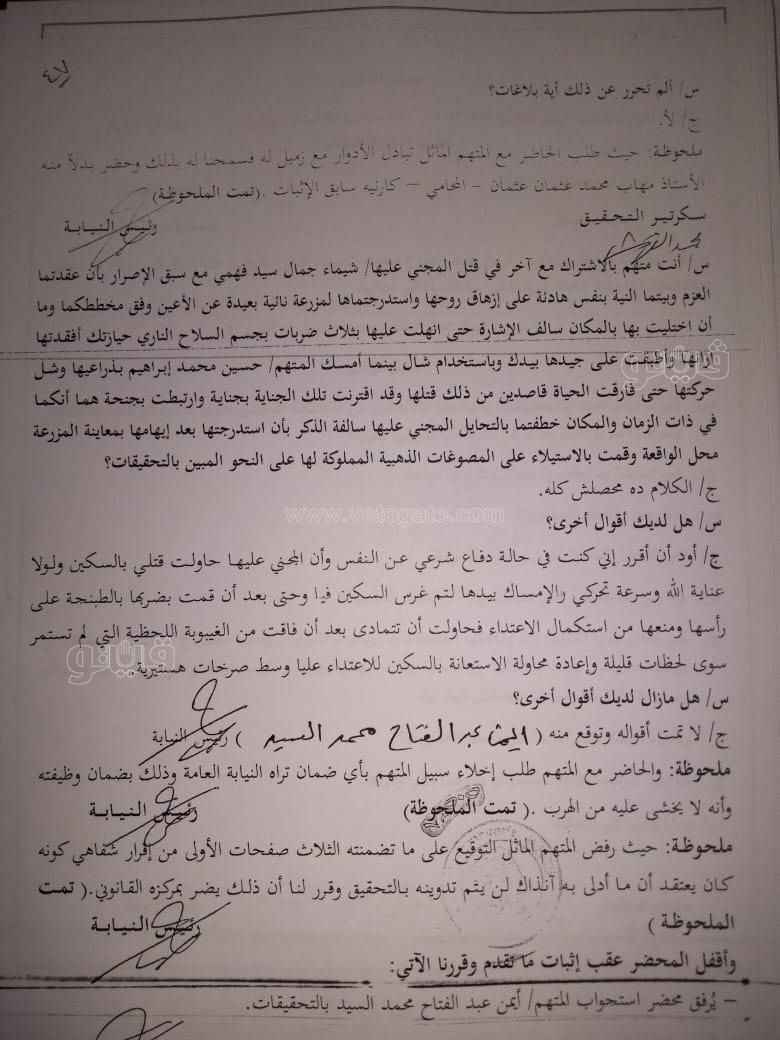 ٤٧
س/ ألم تحرر عن ذلك أية بلاغات؟
ج/ لأ.
ملحوظة: حيث طلب الحاضر مع المتهم الماثل تبادل الأدوار مع زميل له فسمحنا له بذلك وحضر بدلاً منه
الأستاذ مهاب محمد عثمان عثمان – المحامي – كارنيه سابق الإثبات .(تمت الملحوظة)
سكرتير التحقيق
رئيس النيابة
س/ أنت متهم بالاشتراك مع آخر في قتل المجني عليها/ شيماء جمال سيد فهمي مع سبق الإصرار بأن عقدتما
العزم وبيتما النية بنفس هادئة على إزهاق روحها واستدرجتماها لمزرعة نائية بعيدة عن الأعين وفق مخططكما وما
أن اختليت بها بالمكان سالف الإشارة حتى انهلت عليها بثلاث ضربات بجسم السلاح الناري حيازتك أفقدتها
اتزانها وأطبقت على جيدها بيدك وباستخدام شال بينما أمسك المتهم/ حسين محمد إبراهيم بذراعيها وشل
حركتها حتى فارقت الحياة قاصدين من ذلك قتلها وقد اقترنت تلك الجناية بجناية وارتبطت بجنحة هما أنكما
في ذات الزمان والمكان خطفتما بالتحايل المجني عليها سالفة الذكر بأن استدرجتها بعد إيهامها بمعاينة المزرعة
محل الواقعة وقمت بالاستيلاء على المصوغات الذهبية المملوكة لها على النحو المبين بالتحقيقات؟
ج/ الكلام ده محصلش كله.
س/ هل لديك أقوال أخرى؟
ج/ أود أن أقرر إني كنت في حالة دفاع شرعي عن النفس وأن المجني عليها حاولت قتلي بالسكين ولولا
عناية الله وسرعة تحركي والإمساك بيدها لتم غرس السكين فيا وحتى بعد أن قمت بضربها بالطبنجة على
رأسها ومنعها من استكمال الاعتداء فحاولت أن تتمادى بعد أن فاقت من الغيبوبة اللحظية التي لم تستمر
سوى لحظات قليلة وإعادة محاولة الاستعانة بالسكين للاعتداء عليا وسط صرخات هستيرية.
س/ هل مازال لديك أقوال أخرى؟
ج/ لا تمت أقواله وتوقع منه ( أيمن عبد الفتاح محمد السيد ) رئيس النيابة
ملحوظة: والحاضر مع المتهم طلب إخلاء سبيل المتهم بأي ضمان تراه النيابة العامة وذلك بضمان وظيفته
وأنه لا يخشى عليه من الهرب .( تمت الملحوظة) رئيس النيابة
ملحوظة: حيث رفض المتهم الماثل التوقيع على ما تضمنته الثلاث صفحات الأولى من إقرار شفاهي كونه
كان يعتقد أن ما أدلى به آنذاك لن يتم تدوينه بالتحقيق وقرر لنا أن ذلك يضر بمركزه القانوني.( تمت
الملحوظة ) رئيس النيابة
وأقفل المحضر عقب إثبات ما تقدم وقررنا الآتي:
– يُرفق محضر استجواب المتهم/ أيمن عبد الفتاح محمد السيد بالتحقيقات.
www.vetogate.com
ڤيتو
ڤيتو